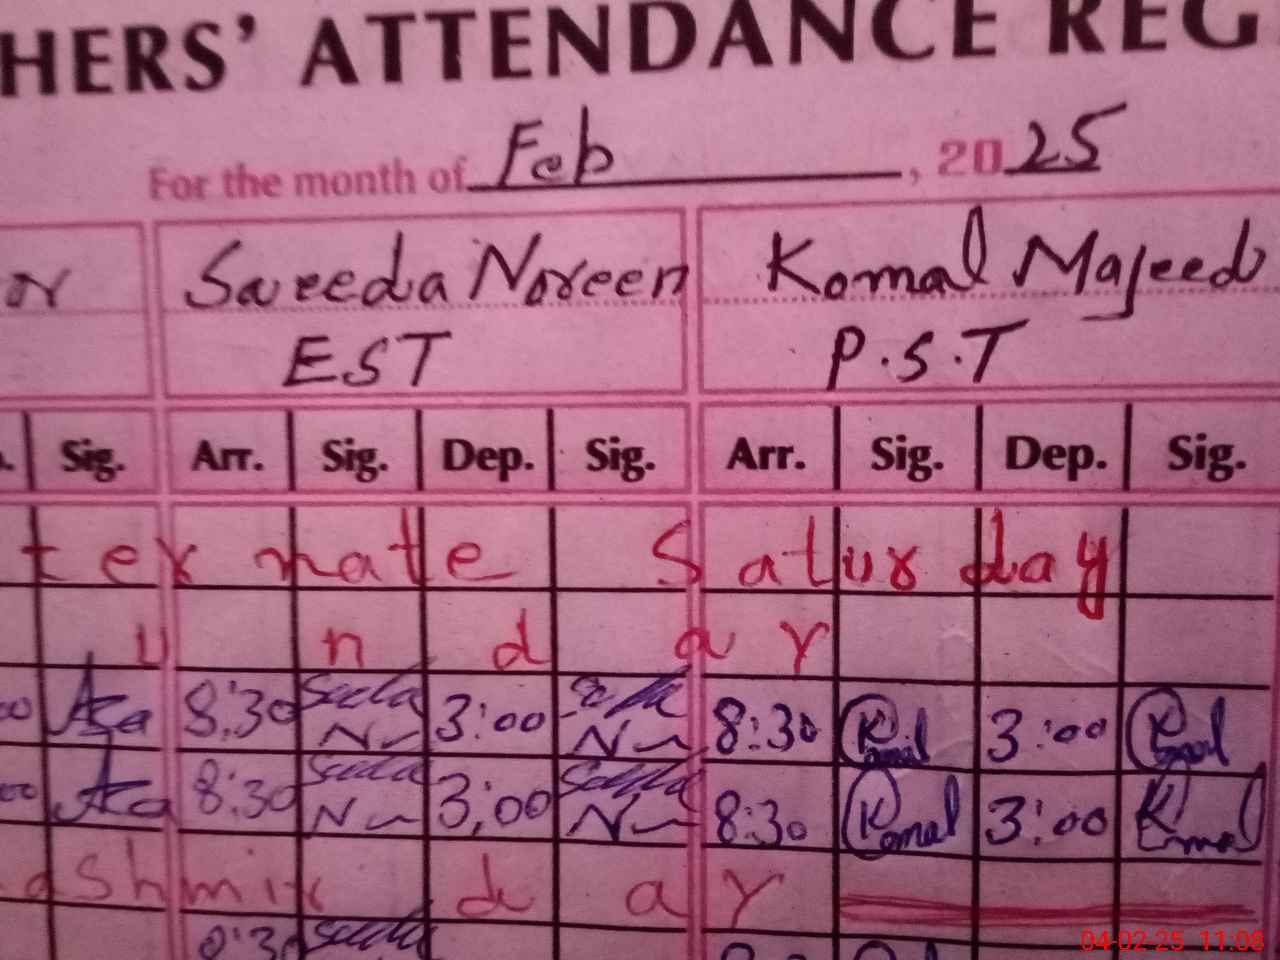 HERS' ATTENDANCE REG
For the month of Feb, 2025
or Saeeda Noreen Komal Majeed
EST P.S.T
Sig. Arr. Sig. Dep. Sig. Arr. Sig. Dep. Sig.
ternate Saturday
unday
00 8:30 3:00 8:30 Komal 3:00 Komal
00 8:30 3:00 8:30 Komal 3:00 Komal
ashmir day
8:30
04-02-25 11:08